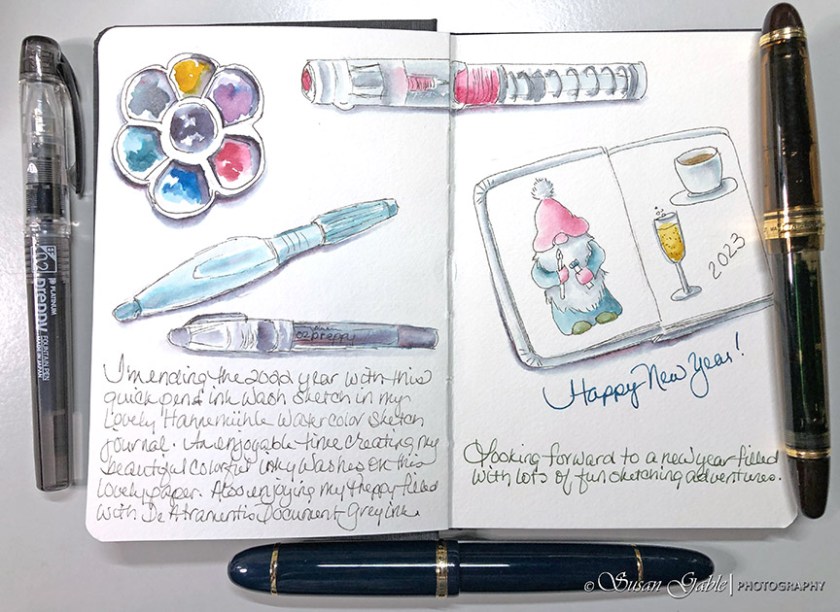 02 Preppy
PLATINUM
FOUNTAIN PEN
MADE IN JAPAN
02 preppy
I'm ending the 2022 year with this
quick pen & ink wash sketch in my
lovely Hahnemühle Watercolor Sketch
journal. An enjoyable time creating my
beautiful colorful inky washes on this
lovely paper. Also enjoying my Preppy filled
with De Atramentis Document Grey ink.
2023
Happy New Year!
Looking forward to a new year filled
with lots of fun sketching adventures.
© Susan Gable | PHOTOGRAPHY